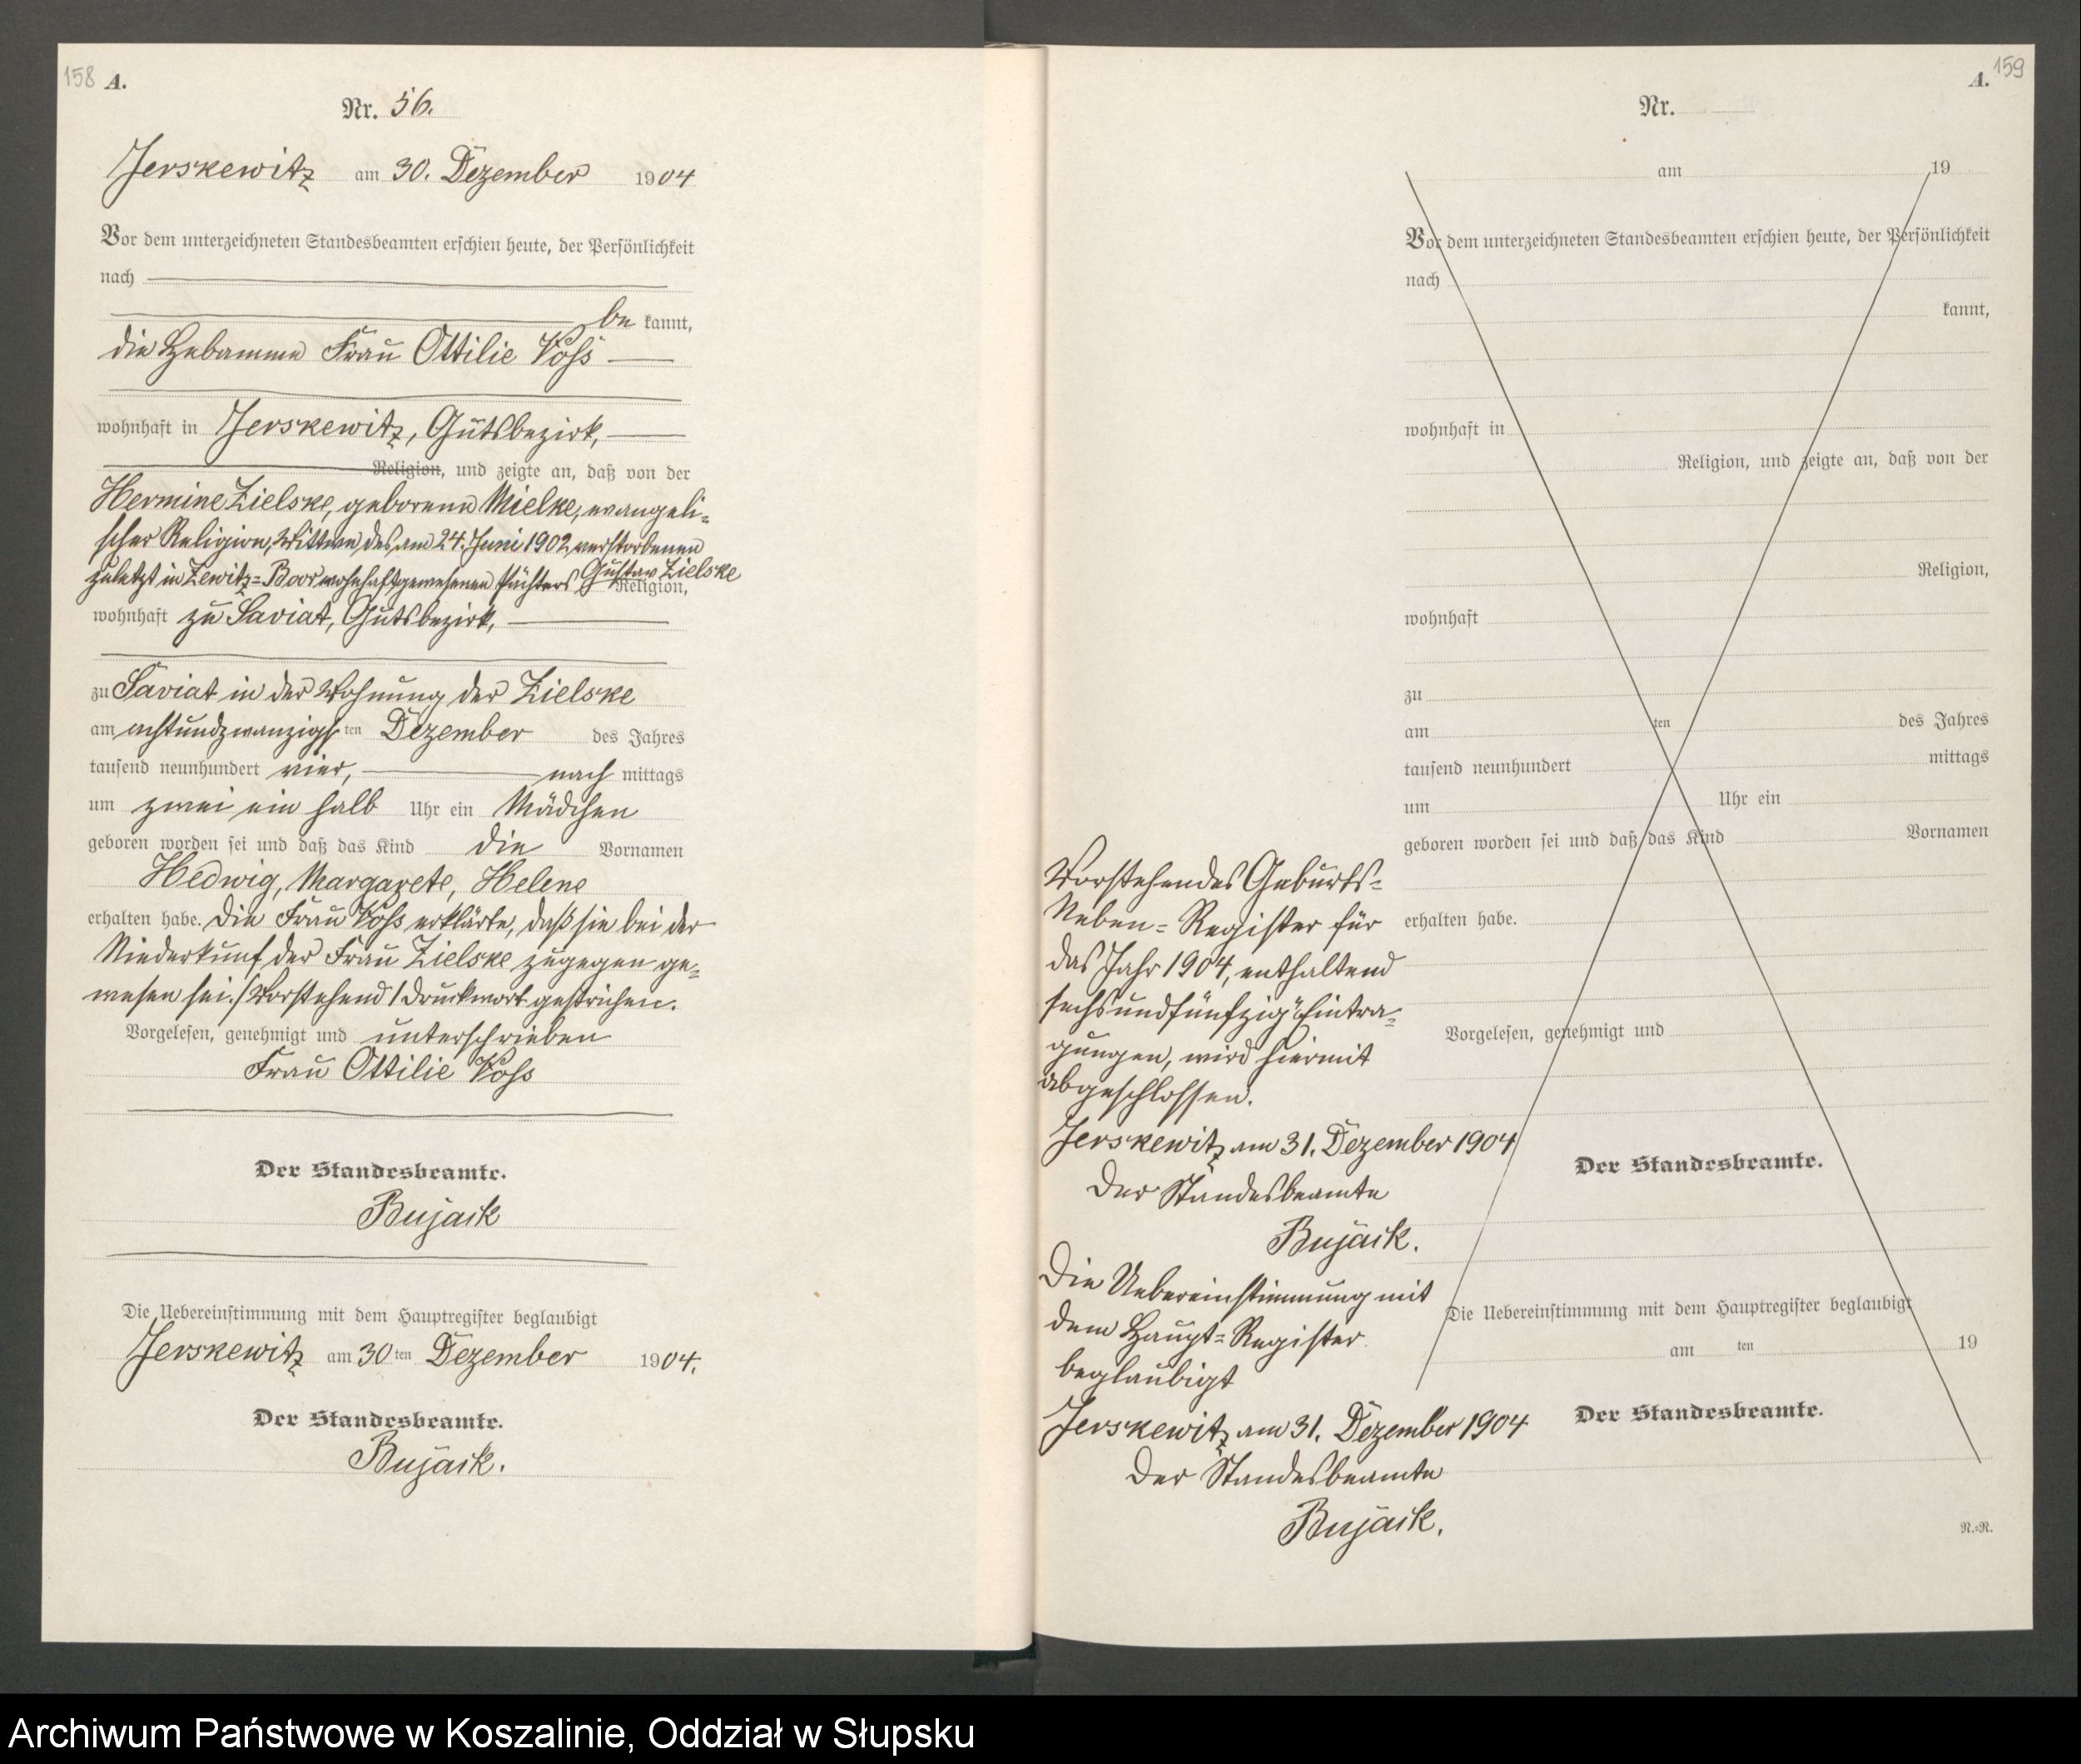 158 A.
Nr. 56.
Jerskewitz am 30. Dezember 1904
Vor dem unterzeichneten Standesbeamten erschien heute, der Persönlichkeit
nach
be kannt,
die Hebamme Frau Ottilie Voss
wohnhaft in Jerskewitz, Gutsbezirk,
Religion, und zeigte an, daß von der
Hermine Zielske, geborene Mielke, evangeli=
scher Religion, Wittwe des am 24. Juni 1902 verstorbenen
zuletzt in Zewitz=Boor wohnhaft gewesenen Pächters Gustav Zielske
Religion,
wohnhaft zu Saviat, Gutsbezirk,
zu Saviat in der Wohnung der Zielske
am achtundzwanzigsten Dezember des Jahres
tausend neunhundert vier, nach mittags
um zwei ein halb Uhr ein Mädchen
geboren worden sei und daß das Kind die Vornamen
Hedwig, Margarete, Helene
erhalten habe. Die Frau Voss erklärte, daß sie bei der
Niederkunf der Frau Zielske zugegen ge=
wesen sei./Vorstehend 1 Druckwort gestrichen.
Vorgelesen, genehmigt und unterschrieben
Frau Ottilie Voss
Der Standesbeamte.
Bujack
Die Uebereinstimmung mit dem Hauptregister beglaubigt
Jerskewitz am 30ten Dezember 1904.
Der Standesbeamte.
Bujack.
A. 159
Nr.
am 19
Vor dem unterzeichneten Standesbeamten erschien heute, der Persönlichkeit
nach
kannt,
wohnhaft in
Religion, und zeigte an, daß von der
Religion,
wohnhaft
zu
am ten des Jahres
tausend neunhundert mittags
um Uhr ein
geboren worden sei und daß das Kind Vornamen
erhalten habe.
Vorgelesen, genehmigt und
Der Standesbeamte.
Die Uebereinstimmung mit dem Hauptregister beglaubigt
am ten 19
Der Standesbeamte.
N.=N.
Vorstehendes Geburts=
Neben=Register für
das Jahr 1904, enthaltend
"sechsundfünfzig" Eintra=
gungen, wird hiermit
abgeschlossen.
Jerskewitz am 31. Dezember 1904
Der Standesbeamte
Bujack.
Die Uebereinstimmung mit
dem Haupt=Register
beglaubigt
Jerskewitz am 31. Dezember 1904
Der Standesbeamte
Bujack.
Archiwum Państwowe w Koszalinie, Oddział w Słupsku